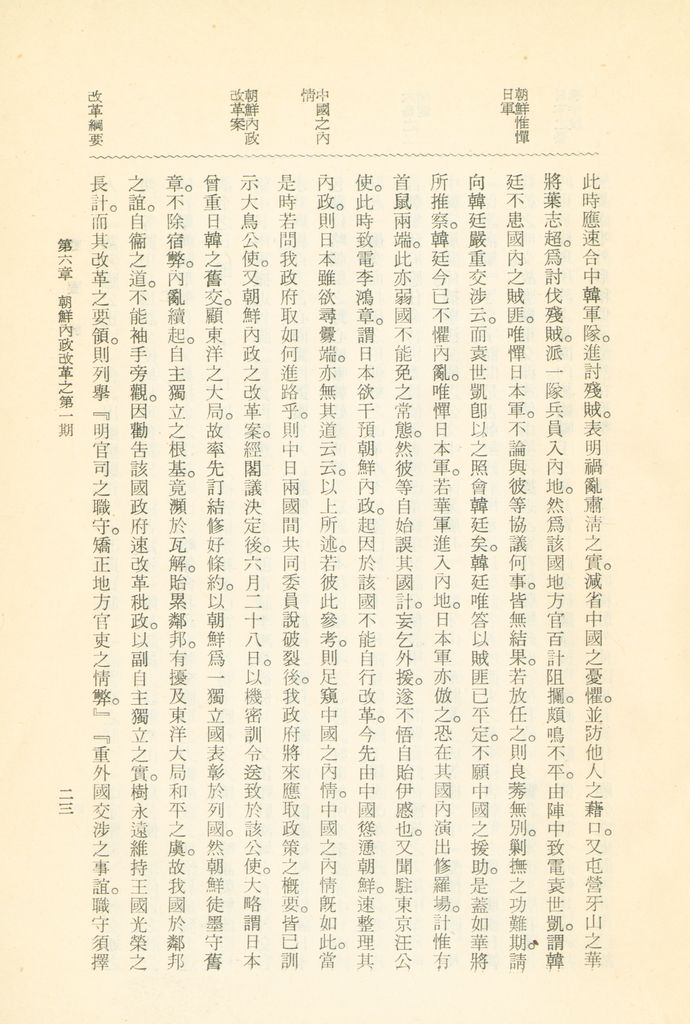 朝鮮惟憚
日軍
中國之內
情
朝鮮內政
改革案
改革綱要
此時應速合中韓軍隊。進討殘賊。表明禍亂肅清之實。減省中國之憂懼。並防他人之藉口。又屯營牙山之華
將葉志超。爲討伐殘賊。派一隊兵員入內地。然爲該國地方官百計阻攔。頗鳴不平。由陣中致電袁世凱。謂韓
廷不患國內之賊匪。唯憚日本軍。不論與彼等協議何事。皆無結果。若放任之。則良莠無別。剿撫之功難期。請
向韓廷嚴重交涉云。而袁世凱卽以之照會韓廷矣。韓廷唯答以賊匪已平定。不願中國之援助。是蓋如華將
所推察。韓廷今已不懼內亂。唯憚日本軍。若華軍進入內地。日本軍亦倣之。恐在其國內演出修羅場。計惟有
首鼠兩端。此亦弱國不能免之常態。然彼等自始誤其國計。妄乞外援。遂不悟自貽伊慼也。又聞駐東京汪公
使。此時致電李鴻章。謂日本欲干預朝鮮內政。起因於該國不能自行改革。今先由中國慫慂朝鮮。速整理其
內政。則日本雖欲尋釁端。亦無其道云云。以上所述。若彼此參考。則足窺中國之內情。中國之內情旣如此。當
是時若問我政府取如何進路乎。則中日兩國間共同委員說破裂後。我政府將來應取政策之概要。皆已訓
示大鳥公使。又朝鮮內政之改革案。經閣議決定後。六月二十八日。以機密訓令送致於該公使。大略謂日本
曾重日韓之舊交。顧東洋之大局。故率先訂結修好條約。以朝鮮爲一獨立國表彰於列國。然朝鮮徒墨守舊
章。不除宿弊。內亂續起。自主獨立之根基。竟瀕於瓦解。貽累鄰邦。有擾及東洋大局和平之虞。故我國於鄰邦
之誼。自衞之道。不能袖手旁觀。因勸吿該國政府速改革秕政。以副自主獨立之實。樹永遠維持王國光榮之
長計。而其改革之要領。則列擧『明官司之職守。矯正地方官吏之情弊。』『重外國交涉之事誼。職守須擇
第六章　朝鮮內政改革之第一期
二三